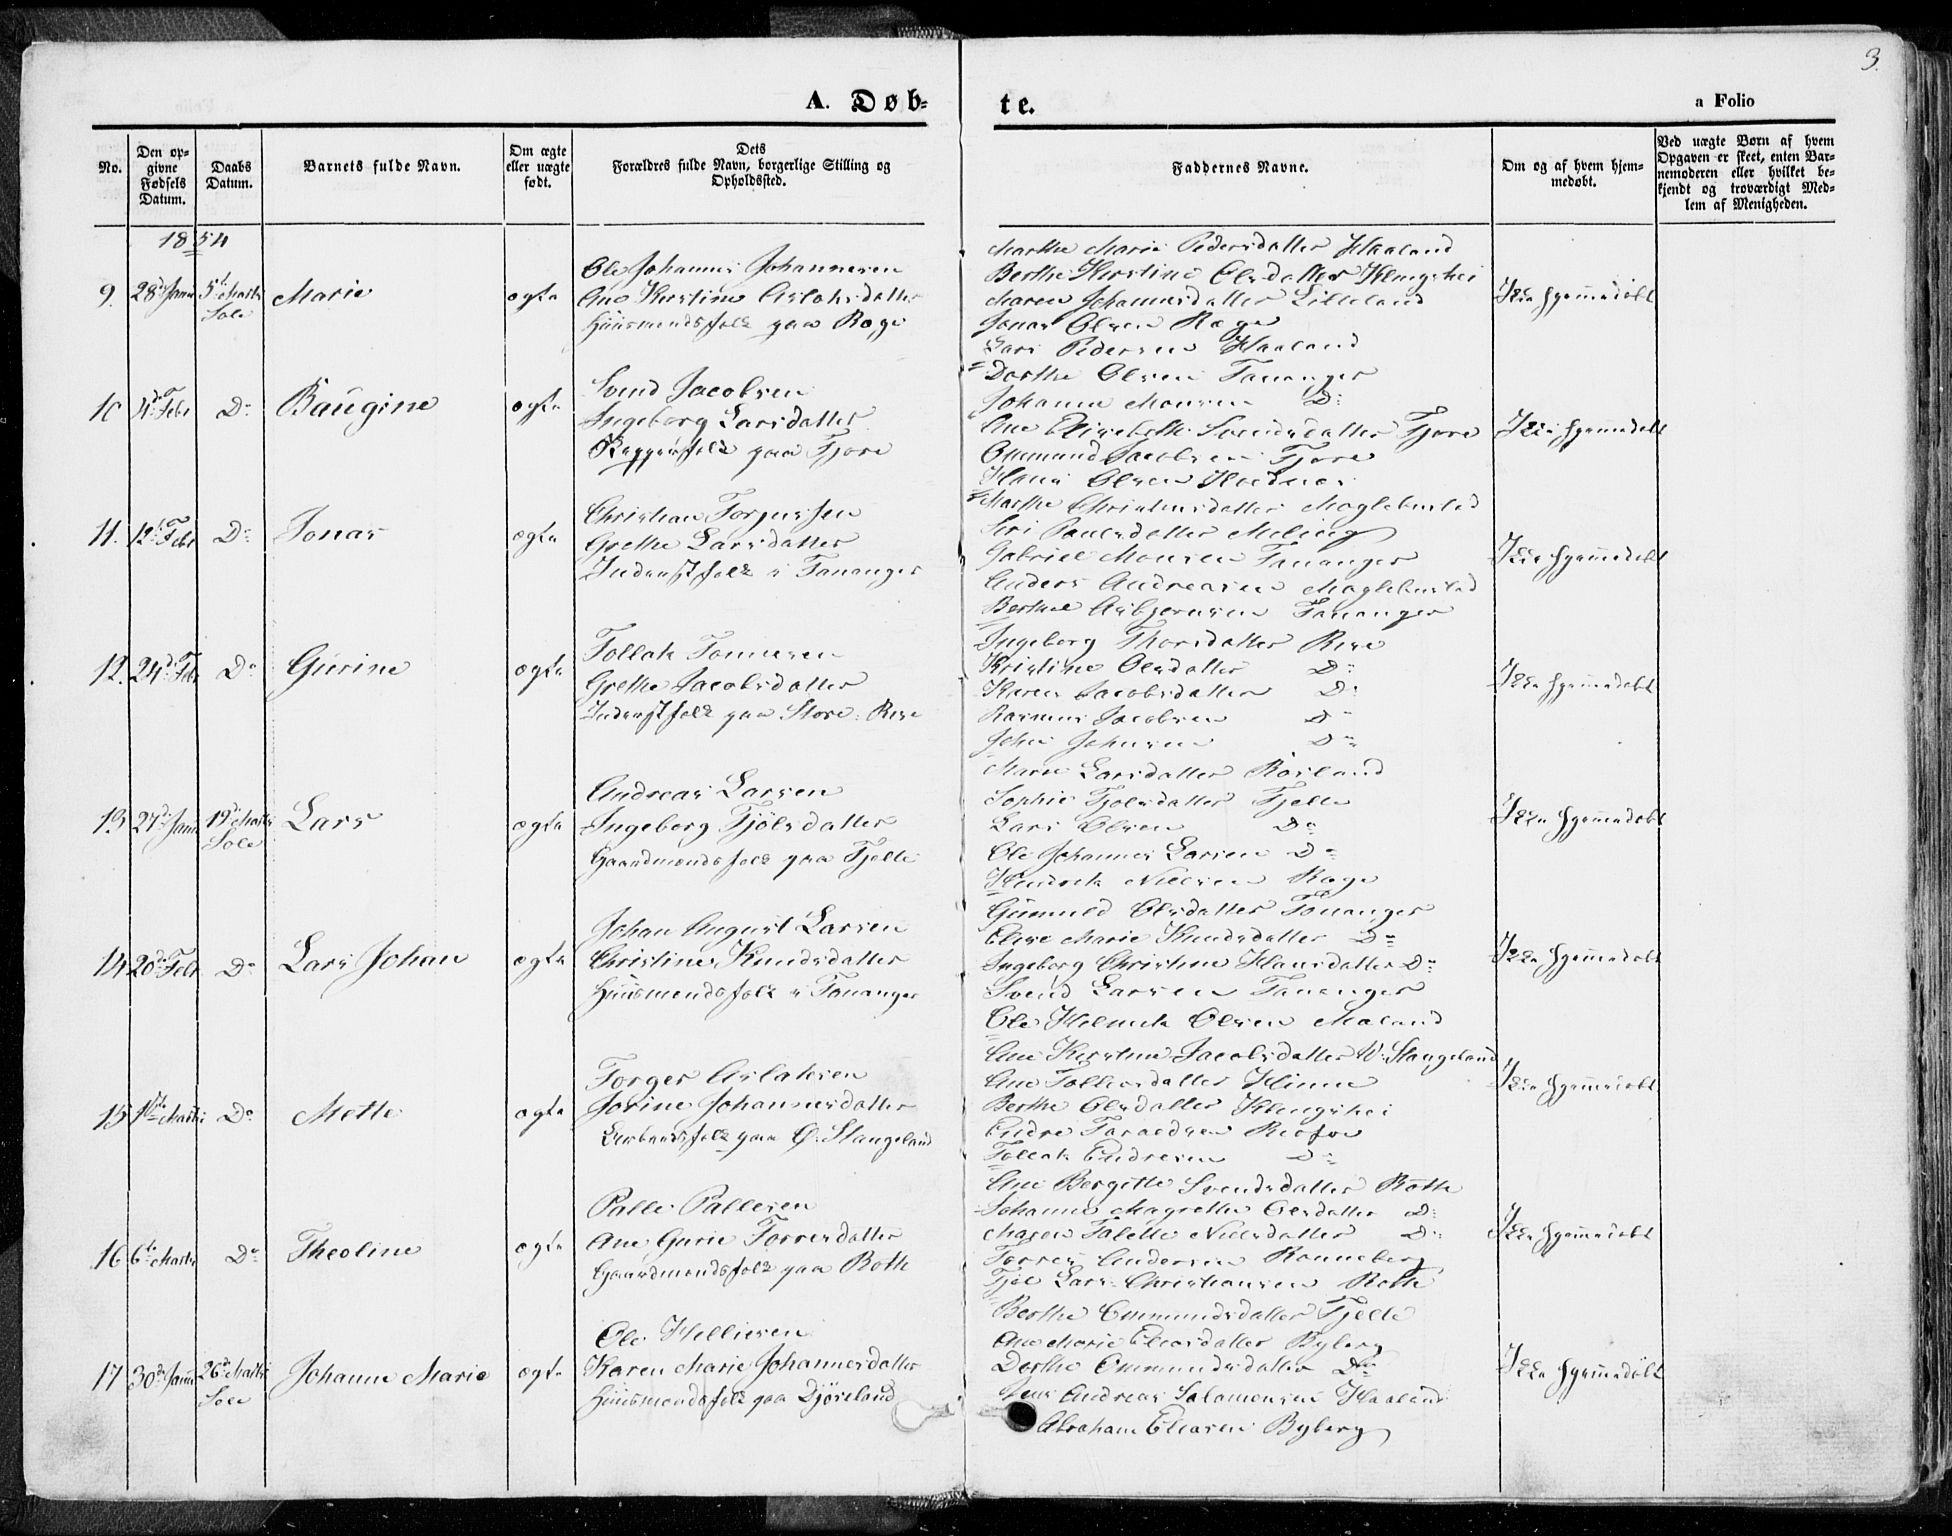 3.
A. Døb-
te.
a Folio
No.
Den op-
givne
Fødsels
Datum.
Daabs
Datum.
Barnets fulde Navn.
Om ægte
eller uægte
født.
Dets
Forældres fulde Navn, borgerlige Stilling og
Opholdssted.
Faddernes Navne.
Om og af hvem hjem-
medøbt.
Ved uægte Børn af hvem
Opgaven er skeet, enten Bar-
nemoderen eller hvilket be-
kjendt og troværdigt Med-
lem af Menigheden.
1854
9. 28d Janu 5te Marts
Sole
Marie
ægte
Ole Johannes Johannesen
Ane Kirstine Aslaksdatter
Huusmandsfolk paa Røge
Marthe Marie Pedersdatter Haaland
Berthe Kirstine Olsdatter Klengshei
Maren Johannesdatter Lilleland
Jonas Olsen Røge
Lars Pedersen Haaland
Ikke hjemmedøbt
10 4d Febr Do
Baugine
ægte
Svend Jacobsen
Ingeborg Larsdatter
Fjore
Dorthe Olsen Tananger
Johanne Monsen Do
Ane Elisabeth Svendsdatter Fjore
Ommund Jacobsen Fjore
Hans Olsen
Ikke hjemmedøbt
11. 12te Febr Do
Jonas
ægte
Christian Torjussen
Grethe Larsdatter
Inderstfolk i Tananger
Marthe Christensdatter Myklebustad
Siri Paulsdatter Meling
Gabriel Monsen Tananger
Anders Andreasen Myklebustad
Berthel Asbjørnsen Tananger
Ikke hjemmedøbt
12. 24d Febr Do
Gurine
ægte
Tollak Tønnesen
Grethe Jacobsdatter
Inderstfolk paa Store Rise
Ingeborg Thorsdatter Rise
Kristine Olsdatter Do
Karen Jacobsdatter Do
Rasmus Jacobsen Do
John Johnsen Do
Ikke hjemmedøbt
13 27d Janu 19d Marts
Sole
Lars
ægte
Andreas Larsen
Ingeborg Fjølsdatter
Gaardmandsfolk paa Fjelle
Maren Larsdatter Røsland
Sophie Fjølsdatter Fjelle
Lars Olsen Do
Ole Johannes Larsen Do
Hendrik Nielsen Røge
Ikke hjemmedøbt
14 20d Febr Do
Lars Johan
ægte
Johan August Larsen
Christine Knudsdatter
Huusmandsfolk i Tananger
Gunnild Olsdatter Tananger
Elise Marie Knudsdatter Do
Ingeborg Christine Hansdatter Do
Svend Larsen Tananger
Ole Helmik Olsen Maland
Ikke hjemmedøbt
15 1ste Marts Do
Mette
ægte
Torger Aslaksen
Jorine Johannesdatter
paa Ø. Stangeland
Ane Kirstine Jacobsdatter W. Stangeland
Ane Tollevsdatter Hinne
Berthe Olsdatter Klengshei
Endre Taraldsen Risfoe
Tollak Endresen Do
Ikke hjemmedøbt
16 6te Marts Do
Theoline
ægte
Palle Pallesen
Ane Gurie Torresdatter
Gaardmandsfolk paa Roth
Ane Bergitte Svendsdatter Roth
Johanne Magrethe Olsdatter Do
Maren Talette Nielsdatter Do
Torres Andersen Ronneberg
Fjøl Lars Christiansen Roth
Ikke hjemmedøbt
17 30d Janu 26d Marts
Sole
Johanne Marie
ægte
Ole Helliesen
Karen Marie Johannesdatter
Huusmandsfolk paa Djøseland
Berthe Ommundsdatter Fjelle
Ane Marie Eliasdatter Byberg
Dorthe Ommundsdatter Do
Jens Andreas Salomonsen Haaland
Abraham Eliasen Byberg
Ikke hjemmedøbt